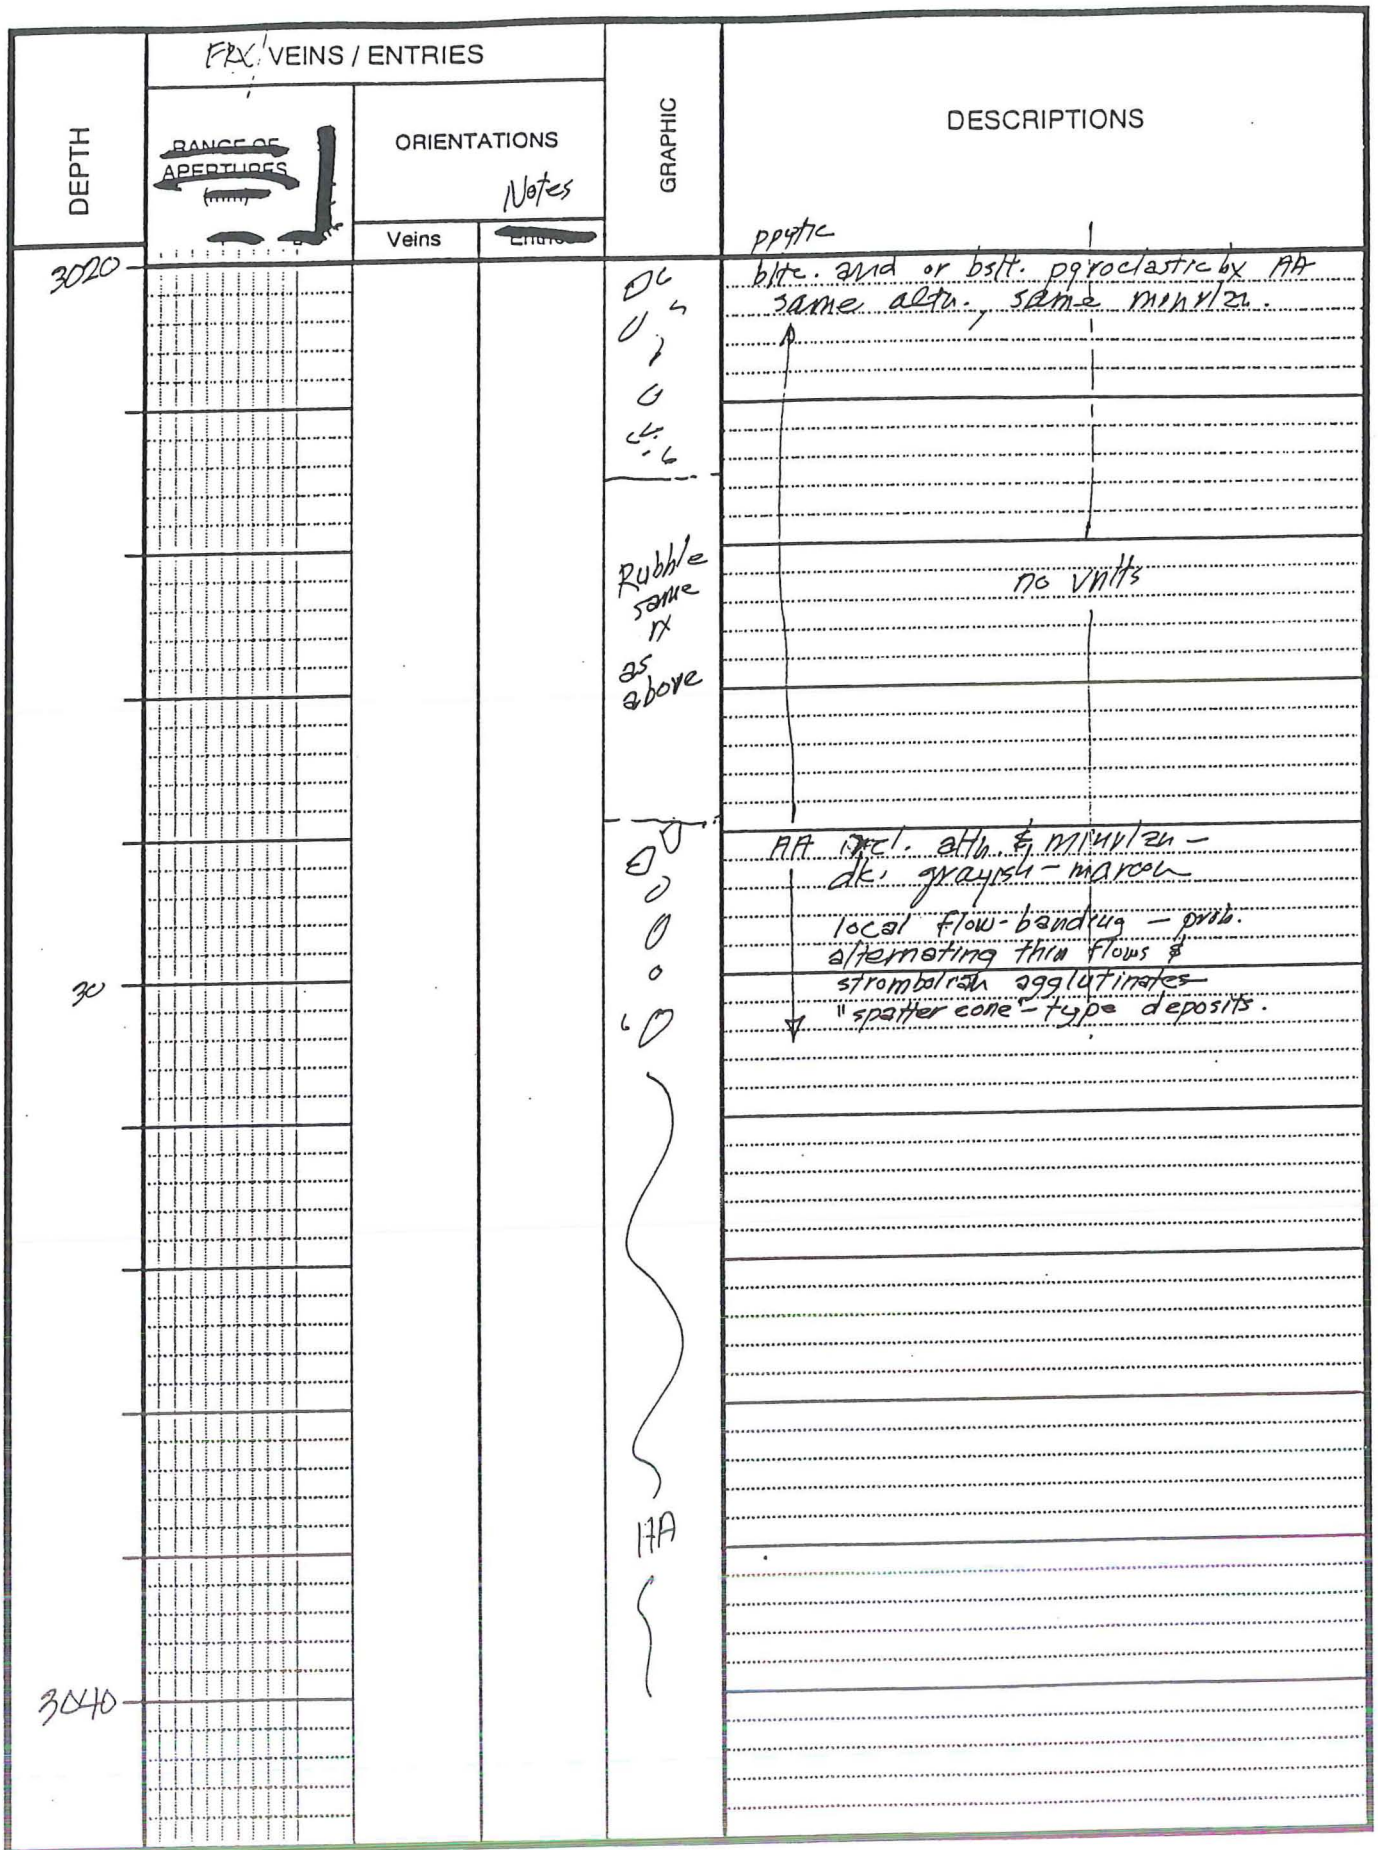 FRX VEINS / ENTRIES
DEPTH
RANGE OF
APERTURES
(mm)
ORIENTATIONS
Notes
Veins
Entries
GRAPHIC
DESCRIPTIONS
3020
30
3040
Rubble
same
rx
as
above
AA
ppytic
bltc. and or bslt. pyroclastic bx AA
same altn., same minrlzn.
no vnlts
AA incl. altn. & minrlzn -
dk. grayish-maroon
local flow-banding - prob.
alternating thin flows &
strombolian agglutinates
"spatter cone"-type deposits.